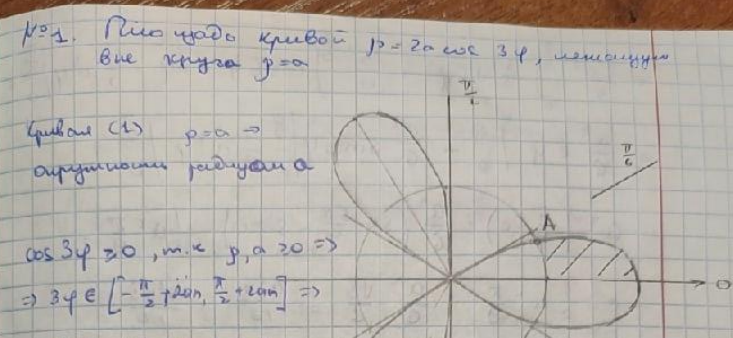 №1. Площадь кривой ρ = 2a cos 3φ, лежащую
вне круга ρ=a
π/2
Кривая (1) ρ=a ⇒
окружность радиусом a
π/6
A
cos 3φ ≥ 0, т.к ρ, a ≥ 0 ⇒
0
⇒ 3φ ∈ [-π/2 + 2πn, π/2 + 2πn] ⇒